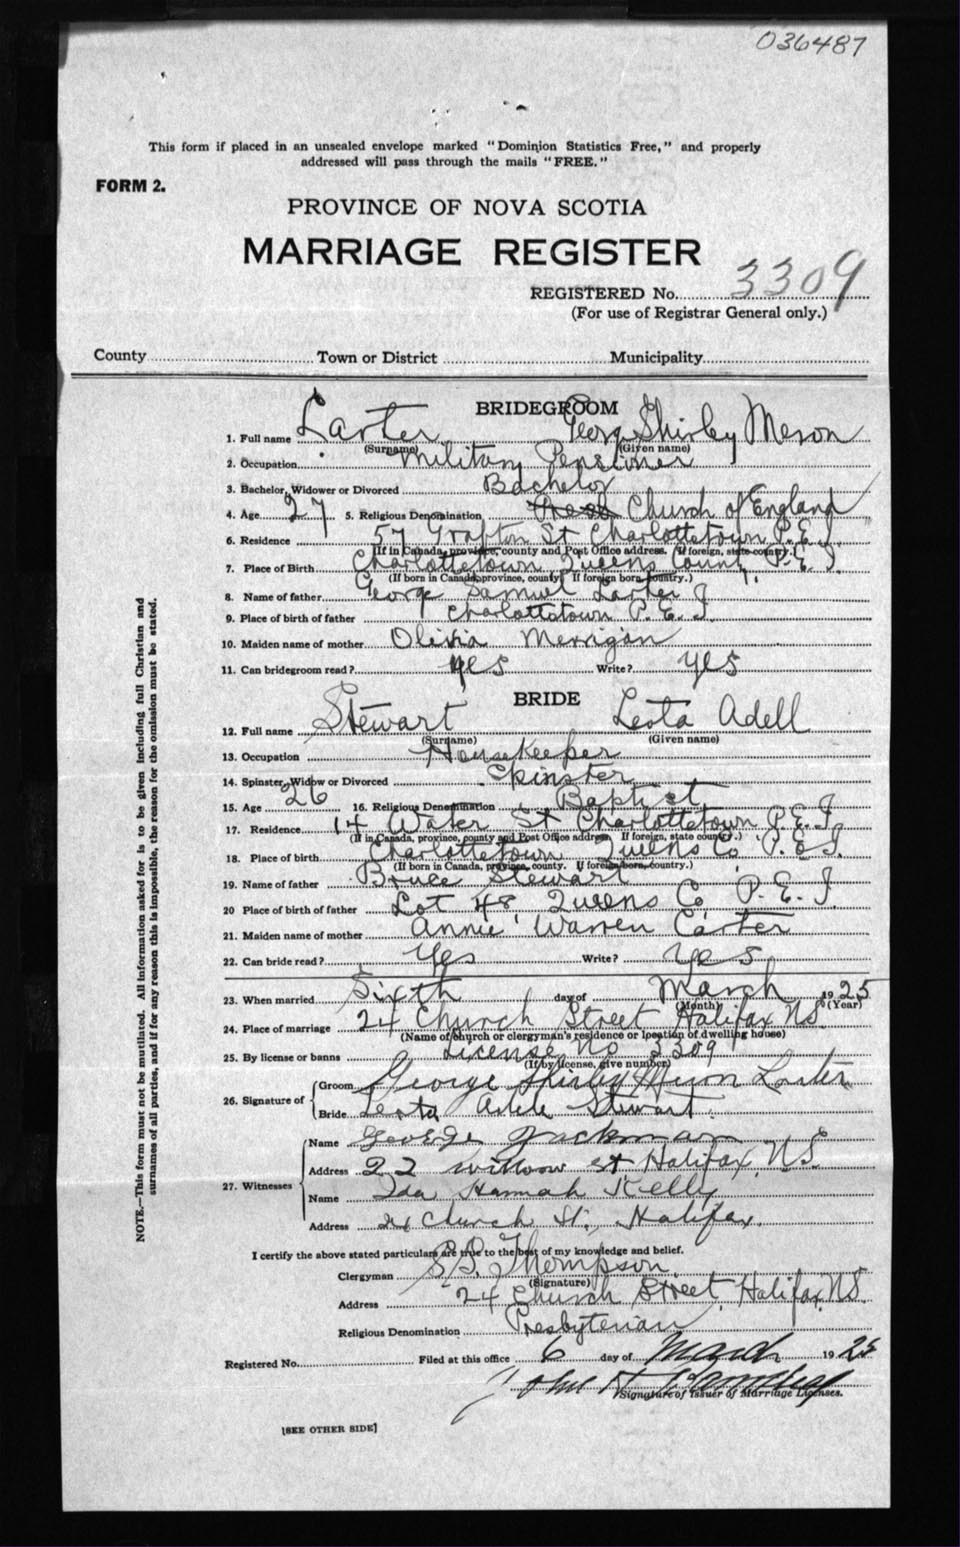 036487
This form if placed in an unsealed envelope marked "Dominion Statistics Free," and properly
addressed will pass through the mails "FREE."
FORM 2.
PROVINCE OF NOVA SCOTIA
MARRIAGE REGISTER
REGISTERED No. 3309
(For use of Registrar General only.)
County Town or District Municipality
BRIDEGROOM
1. Full name Larter George Shirley Meron
(Surname) (Given name)
2. Occupation Military Pensioner
3. Bachelor, Widower or Divorced Bachelor
4. Age 27 5. Religious Denomination Church of England
6. Residence 57 Grafton St Charlottetown P.E.I.
(If in Canada, province, county and Post Office address. If foreign, state country.)
7. Place of Birth Charlottetown Queens County P.E.I.
(If born in Canada, province, county. If foreign born, country.)
8. Name of father George Samuel Larter
9. Place of birth of father Charlottetown P.E.I.
10. Maiden name of mother Olivia Merrigan
11. Can bridegroom read? yes Write? yes
BRIDE
12. Full name Stewart Leota Adell
(Surname) (Given name)
13. Occupation Housekeeper
14. Spinster, Widow or Divorced Spinster
15. Age 26 16. Religious Denomination Baptist
17. Residence 14 Water St Charlottetown P.E.I
(If in Canada, province, county and Post Office address. If foreign, state country.)
18. Place of birth Charlottetown Queens Co P.E.I.
(If born in Canada, province, county. If foreign born, country.)
19. Name of father Bruce Stewart
20 Place of birth of father Lot 48 Queens Co P.E.I.
21. Maiden name of mother Annie Warren Carter
22. Can bride read? Yes Write? yes
23. When married Sixth day of March 1925
(Month) (Year)
24. Place of marriage 24 Church Street Halifax NS
(Name of church or clergyman's residence or location of dwelling house)
25. By license or banns License No 3309
(If by license, give number)
26. Signature of
Groom George Shirley Larter
Bride Leota Adele Stewart
27. Witnesses
Name George Jackman
Address 22 Willow St Halifax, N.S.
Name Ida Hannah Kelly
Address 24 Church St., Halifax.
I certify the above stated particulars are true to the best of my knowledge and belief.
Clergyman Thompson
(Signature)
Address 24 Church Street, Halifax, NS.
Religious Denomination Presbyterian
Registered No. Filed at this office 6 day of March 1925
John H
Signature of Issuer of Marriage Licenses.
[SEE OTHER SIDE]
NOTE.—This form must not be mutilated. All information asked for is to be given including full Christian and
surnames of all parties, and if for any reason this is impossible, the reason for the omission must be stated.